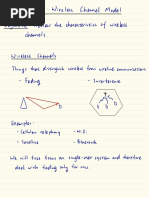 - Wireless Channel Model
review the characteristics of wireless
channels.
Wireless Channels
Things that distinguish wireless from wireline communications:
- Fading
- Interference
Examples:
- Cellular telephony
- H.F.
- Satellite
- Bluetooth
We will focus on single-user system and therefore
deal with fading only for now.